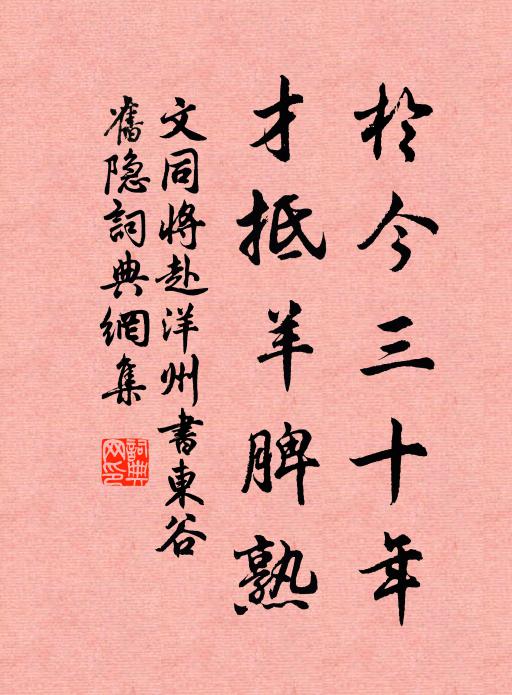 於今三十年
才抵羊脾熟
文同將赴洋州書東谷
舊隐詞典網集
詞典网印